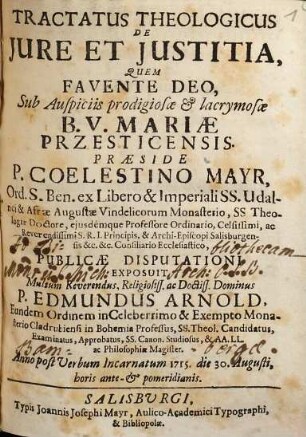 TRACTATUS THEOLOGICUS
DE
JURE ET JUSTITIA,
QUEM
FAVENTE DEO,
Sub Auspiciis prodigiosæ & lacrymosæ
B. V. MARIÆ
PRZESTICENSIS.
PRÆSIDE
P. COELESTINO MAYR,
Ord. S. Ben. ex Libero & Imperiali SS. Udal-
rici & Afræ Augustæ Vindelicorum Monasterio, SS Theo-
logiæ Doctore, ejusdémque Professore Ordinario, Celsissimi, ac
Reverendissimi S. R. I. Principis, & Archi-Episcopi Salisburgen-
sis &c. &c. Consiliario Ecclesiastico,
PUBLICÆ DISPUTATIONI
EXPOSUIT
Multùm Reverendus, Religiosiss. ac Doctiss. Dominus
P. EDMUNDUS ARNOLD,
Eundem Ordinem in Celeberrimo & Exempto Mona-
sterio Cladrubiensi in Bohemia Professus, SS. Theol. Candidatus,
Examinatus, Approbatus, SS. Canon. Studiosus, & AA. LL.
ac Philosophiæ Magister.
Anno post Verbum Incarnatum 1715. die 30. Augusti,
horis ante- & pomeridianis.
SALISBURGI,
Typis Joannis Josephi Mayr, Aulico-Academici Typographi,
& Bibliopolæ.